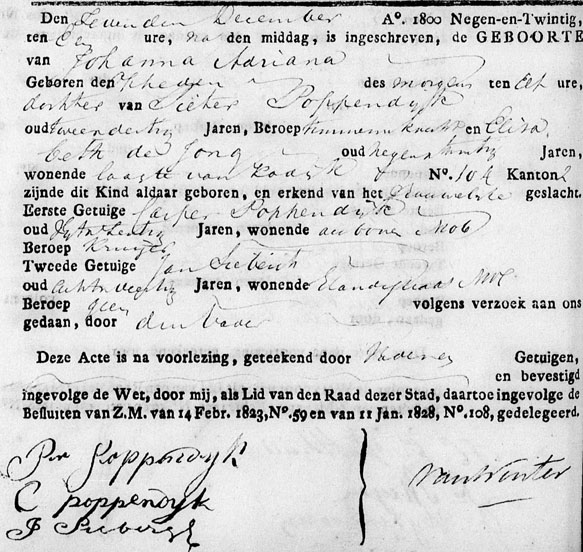 Den Sevenden December A°. 1800 Negen-en-Twintig,
ten Een ure, na den middag, is ingeschreven, de GEBOORTE
van Johanna Adriana
Geboren den heden des morgens ten Elf ure,
dochter van Pieter Poppendyk
oud twee en dertig Jaren, Beroep timmermansknecht en Elisa
beth de Jong oud negen en twintig Jaren,
wonende laagte van Kadyk N°. 104 Kanton 2
zijnde dit Kind aldaar geboren, en erkend van het Vrouwelyke geslacht.
Eerste Getuige Casper Poppendyk
oud Jaren, wonende
Beroep Kruijer
Tweede Getuige Jan Sieberg
oud acht en veertig Jaren, wonende Elandsgraat
Beroep geen volgens verzoek aan ons
gedaan, door den Vader
Deze Acte is na voorlezing, geteekend door Getuigen,
en bevestigd
ingevolge de Wet, door mij, als Lid van den Raad dezer Stad, daartoe ingevolge de
Besluiten van Z.M. van 14 Febr. 1823, N°. 59 en van 11 Jan. 1828, N°. 108, gedelegeerd.
Pr Poppendyk
C poppendyk
J Sieberg
VanWinter